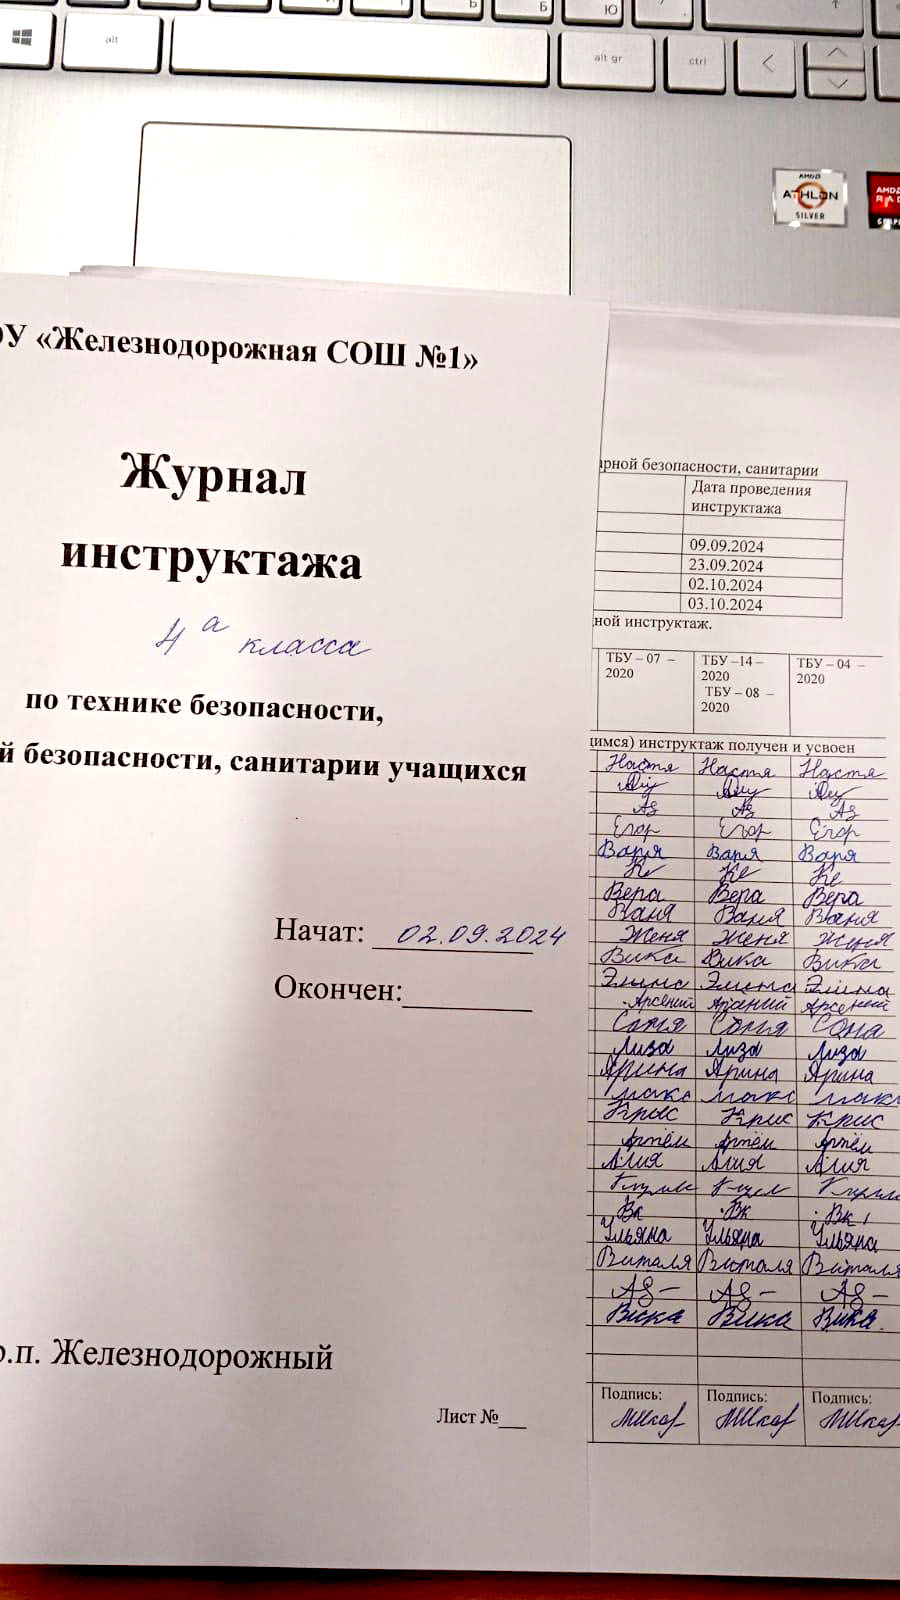 Ь
Б
Ю
alt
alt gr
ctrl
AMD
ATHLON
SILVER
AMD
RAD
ОУ «Железнодорожная СОШ №1»
Журнал
инструктажа
4 а класса
по технике безопасности,
й безопасности, санитарии учащихся
Начат: 02.09.2024
Окончен:
р.п. Железнодорожный
Лист №
арной безопасности, санитарии
Дата проведения
инструктажа
09.09.2024
23.09.2024
02.10.2024
03.10.2024
ной инструктаж.
ТБУ – 07 – ТБУ –14 – ТБУ – 04 –
2020 2020 2020
ТБУ – 08 –
2020
щимся) инструктаж получен и усвоен
Настя Настя Настя
Аз Аз Аз
Егор Егор Егор
Варя Варя Варя
Ке Ке Ке
Вера Вера Вера
Ваня Ваня Ваня
Женя Женя Женя
Вика Вика Вика
Элина Элина Элина
Арсений Арсений Арсений
Соня Соня Соня
Лиза Лиза Лиза
Ярина Арина Арина
макс макс макс
Крис Крис Крис
Артём Артём Артём
Алия Алия Алия
Вк Вк Вк
Ульяна Ульяна Ульяна
Виталя Виталя Виталя
Вика Вика Вика
Подпись: Подпись: Подпись: